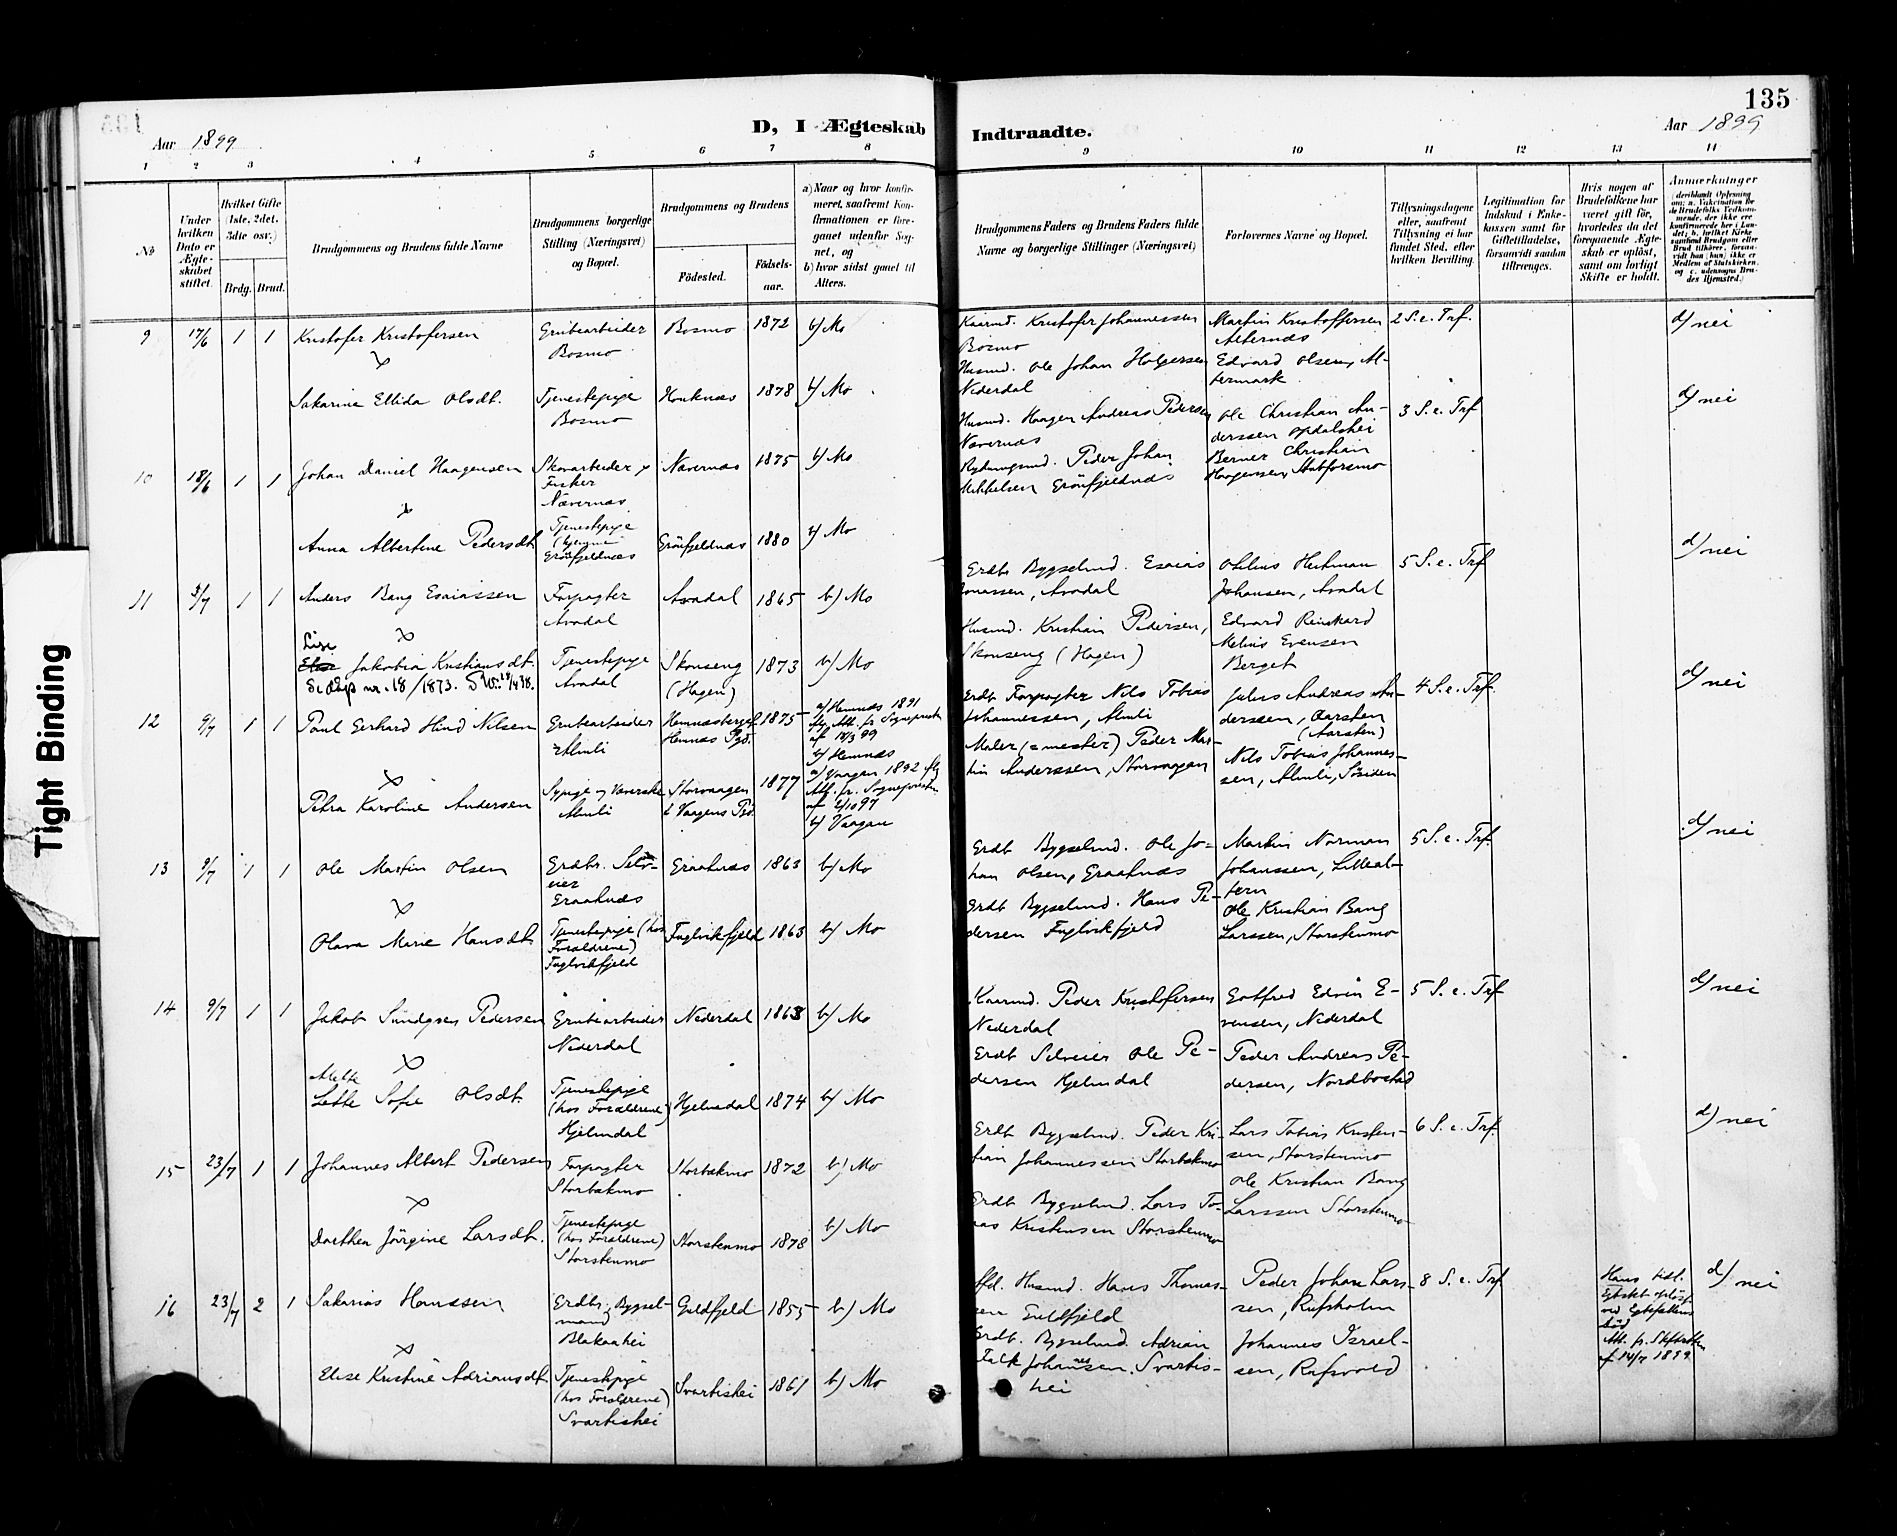 135
Aar 1899
D, I Ægteskab Indtraadte.
Aar 1899
1 2 3 4 5 6 7 8 9 10 11 12 13 14
No
Under hvilken Dato er Ægteskabet stiftet.
Hvilket Gifte (1ste, 2det, 3die osv.)
Brdg. Brud.
Brudgommens og Brudens fulde Navne
Brudgommens borgerlige Stilling (Næringsvei) og Bopæl.
Brudgommens og Brudens
Födested.
Födselsaar.
a) Naar og hvor konfirmeret, saafremt Konfirmationen er foregaaet udenfor Sognet, og
b) hvor sidst gaaet til Alters.
Brudgommens Faders og Brudens Faders fulde Navne og borgerlige Stillinger (Næringsvei)
Forlovernes Navne og Bopæl.
Tillysningsdagene eller, saafremt Tillysning ei har fundet Sted, efter hvilken Bevilling.
Legitimation for Indskud i Enkekassen samt for Giftetilladelse, forsaavidt saadan tiltrænges.
Hvis nogen af Brudefolkene har været gift för, hvorledes da det foregaaende Ægteskab er oplöst, samt om lovligt Skifte er holdt.
Anmærkninger
Tight Binding
9 17/6 1 1 Kristofer Kristofersen Grubearbeider Bosmo Bosmo 1872 b/ Mo
Kaarmd. Kristofer Johannessen Bosmo
Martin Kristoffersen Alternæs
2 S. e. Tref. d/ nei
x
Sakarine Ellida Olsdt. Tjenestepige Bosmo Hauknæs 1878 b/ Mo
Husmd. Ole Johan Holgersen Nederdal
Edvard Olsen, Altermark
10 18/6 1 1 Johan Daniel Haagensen Skovarbeider & Fisker Nævernæs Nævernæs 1875 b/ Mo
Husmd. Haagen Andreas Pedersen Nævernæs
Ole Christian Anderssen Opdalshei
3 S. e. Tref d/ nei
x
Anna Albertine Pedersdt. Tjenestepige Grönfjeldnæs Grönfjeldnæs 1880 b/ Mo
Rydningsmd. Peder Johan Mikkelsen Grönfjeldnæs
Berner Christian Haagensen, Stabforsmo
11 3/7 1 1 Anders Bang Esaiassen Forpagter Avadal Avadal 1865 b/ Mo
Grdbr Bygselmd. Esaias Jonassen, Avadal
Johansen, Avadal
5 S. e. Tref d/ nei
x
Lise
Jakobia Kristiansdt. Tjenestepige Avadal Skonseng (Hagen) 1873 b/ Mo
Se dåp nr. 18/1873.
Husmd. Kristian Pedersen, Skonseng (Hagen)
Edvard Reinhard Melius Evensen Berget
12 9/7 1 1 Paul Gerhard Hind Nilsen Grubearbeider Almli Hemnæs Pgd. 1875
a/ Hemnæs 1891 flg. Att. fr. Sognepræsten
b/ Hemnæs
Grdb Forpagter Nils Tobias Johannessen, Almli
Julius Andreas Anderssen, Aarsten (Aarsten)
4 S. e. Tref. d/ nei
x
Petra Karoline Andersen Sypige og Væverske Almli Storvaagen Vaagens Pgd. 1877
a/ Vaagan 1892 flg Att. fr. Sognepræsten af 2/10 97
b/ Vaagan
Maler (=mester) Peder Martin Anderssen, Storvaagen
Nils Tobias Johannessen, Almli, Söriden
13 9/7 1 1 Ole Martin Olsen Grdbr. Selveier Graaknæs Graaknæs 1863 b/ Mo
Grdb Bygselmd. Ole Johan Olsen, Graaknæs
Martin Norman Johanssen, Lillealtern
5 S. e. Tref. d/ nei
x
Olava Marie Hansdt. Tjenestepige (hos Forældrene) Fuglvikfjeld Fuglvikfjeld 1863 b/ Mo
Grdb Bygselmd. Hans Pedersen Fuglvikfjeld
Ole Kristian Bang Larssen, Storstenmo
14 9/7 1 1 Jakob Sundgren Pedersen Grubearbeider Nederdal Nederdal 1868 b/ Mo
Kaarmd. Peder Kristofersen Nederdal
Gotfred Edvin Evensen, Nederdal
5 S. e. Tref d/ nei
x
Mette
Sofie Olsdt. Tjenestepige (hos Forældrene) Hjelmdal Hjelmdal 1874 b/ Mo
Grdb Selveier Ole Pedersen Hjelmdal
Peder Andreas Pedersen, Nordbostad
15 23/7 1 1 Johannes Albert Pedersen Forpagter Storbækmo Storbækmo 1872 b/ Mo
Grdb Bygselmd. Peder Kristian Johannessen Storbækmo
Lars Tobias Kristensen, Storstenmo
6 S. e. Tref. d/ nei
x
Dorthea Jörgine Larsdt. Tjenestepige (hos Forældrene) Storstenmo Storstenmo 1878 b/ Mo
Grdb Bygselmd. Lars Tobias Kristensen Storstenmo
Ole Kristian Bang Larssen Storstenmo
16 23/7 2 1 Sakarias Hanssen Grdbr. Bygselmand Blakaahei Guldfjeld 1855 b/ Mo
Husmd. Hans Thomassen Guldfjeld
Peder Johan Larssen, Rufsholm
8 S. e. Tref
Hans tidl. Egteskab oplöst ved Egtefællens Död Att. fr. Skifteretten af 14/7 1899
d/ nei
x
Elise Kristine Adriansdt. Tjenestepige (hos Forældrene) Svartishei Svartishei 1861 b/ Mo
Grdb. Bygselmd. Adrian Falk Johannesen, Svartishei
Johannes Israelsen, Rufsvold